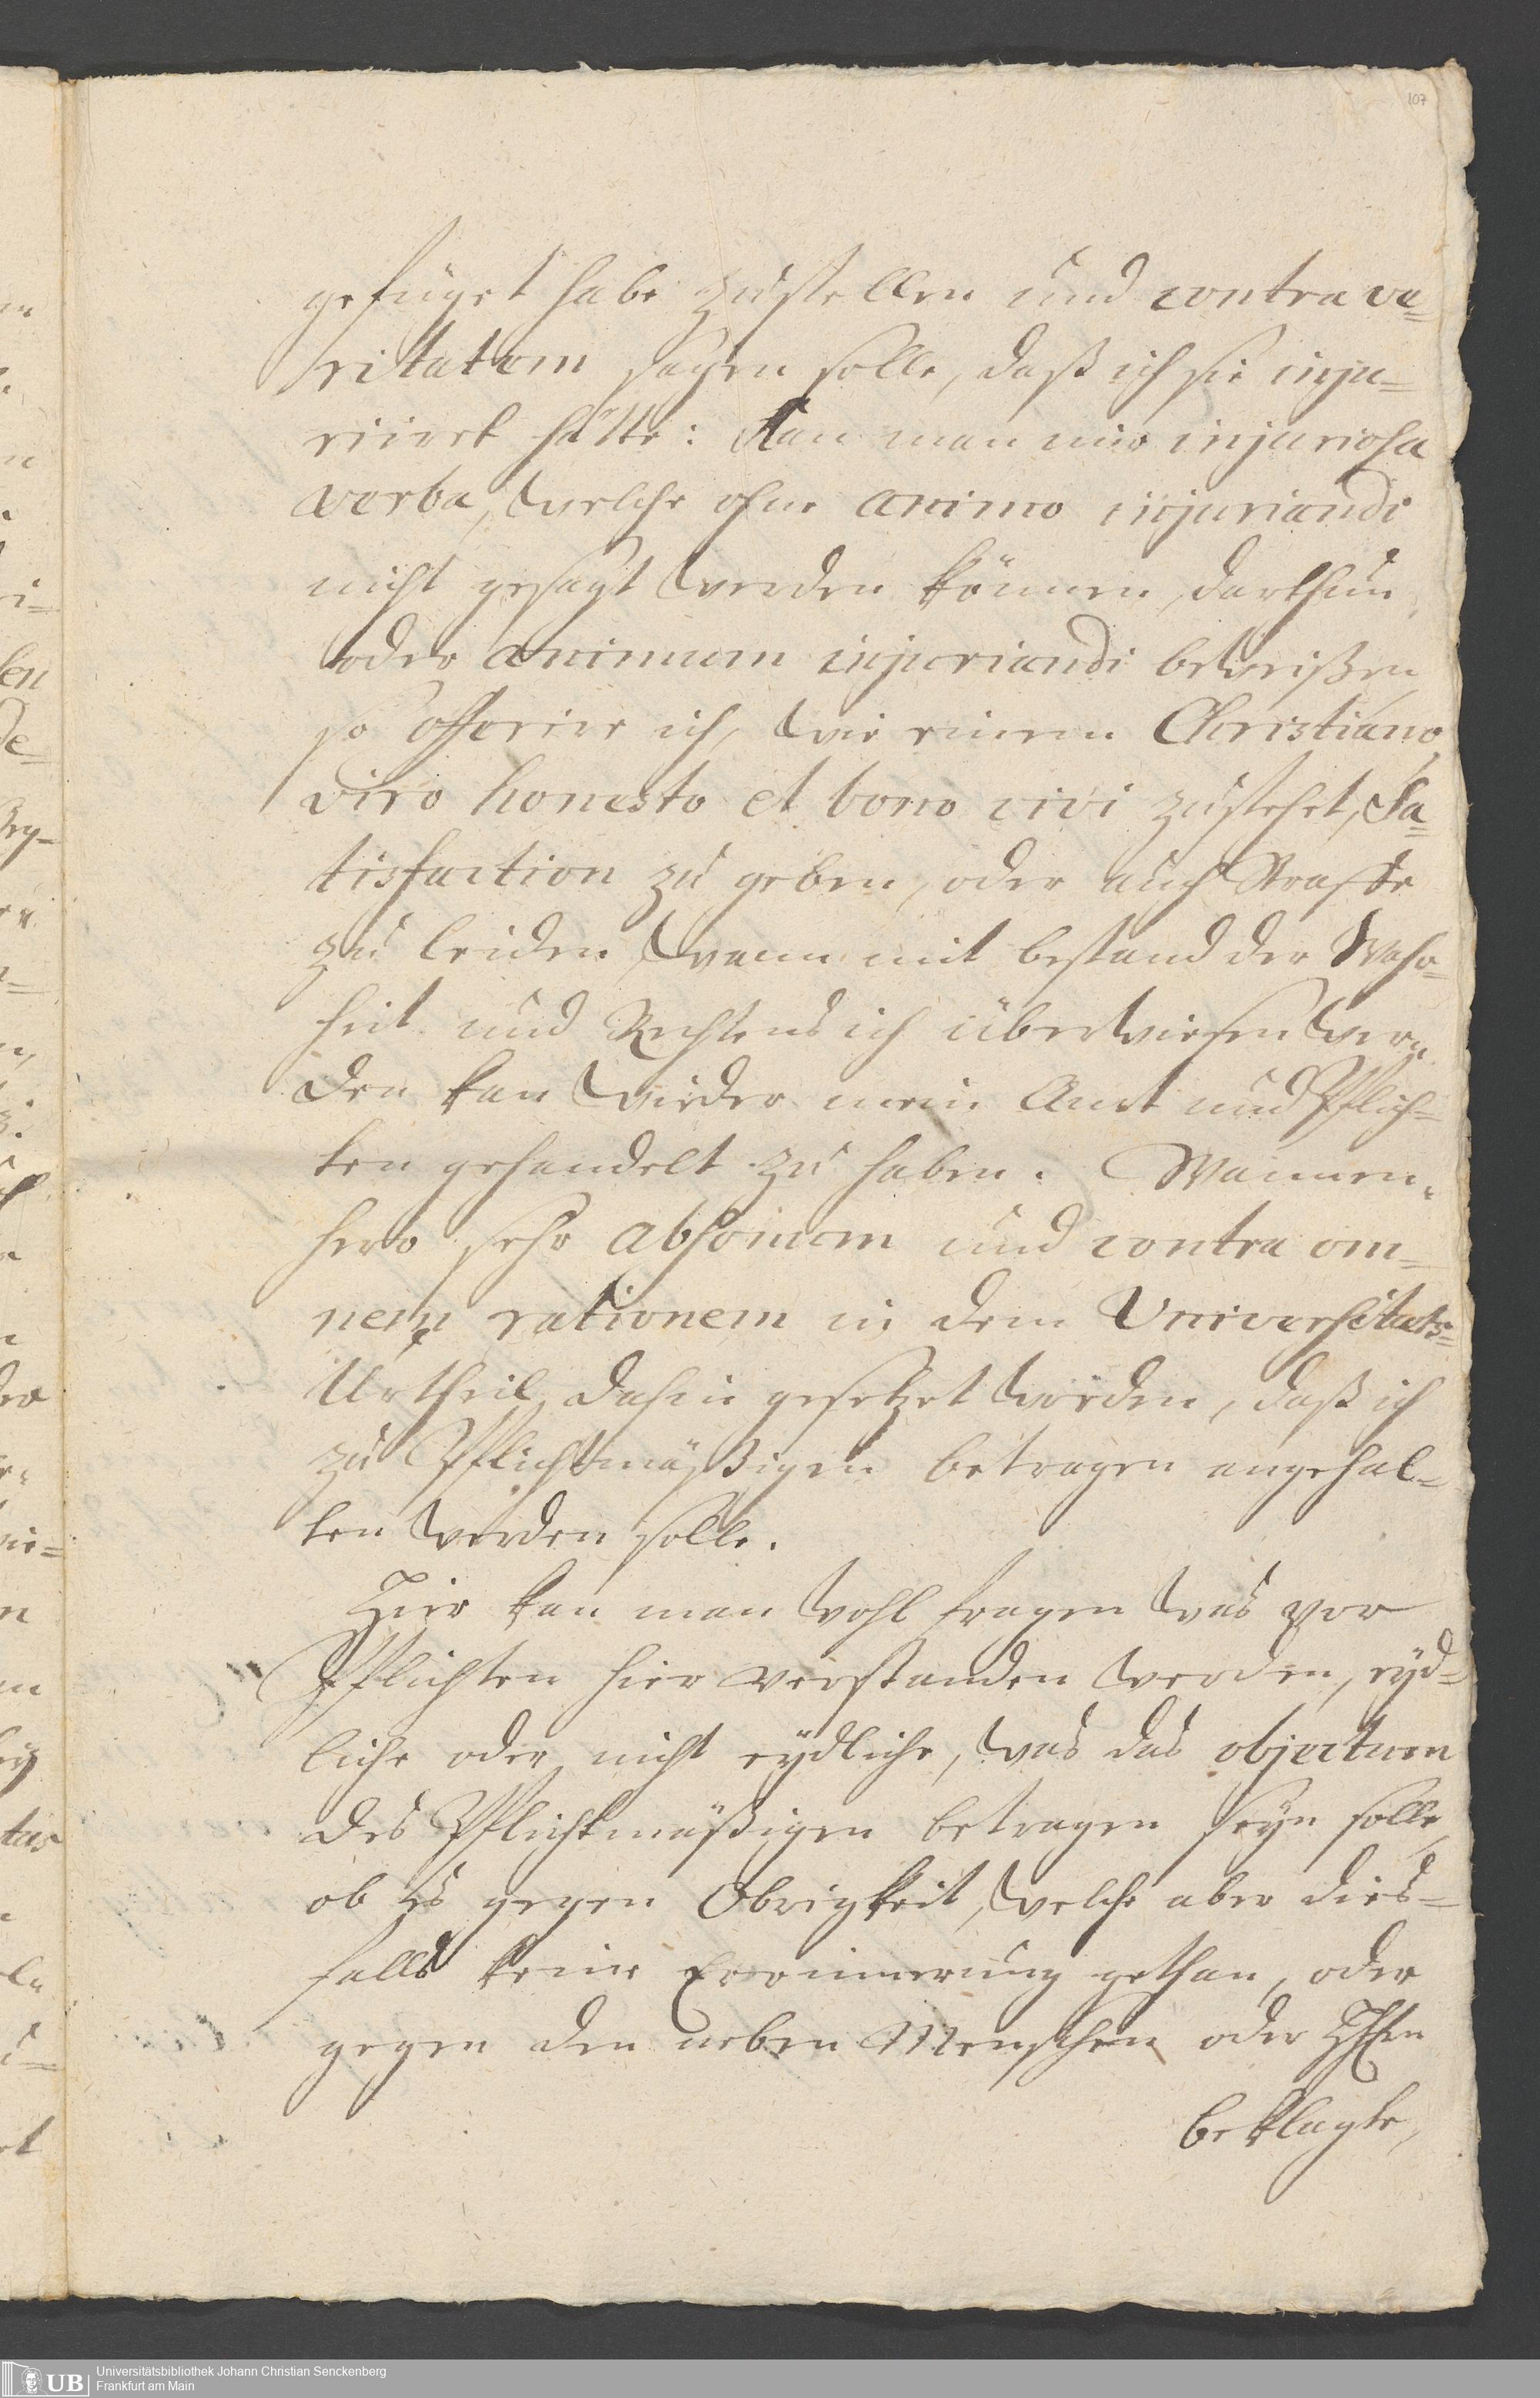 107
gefüget habe zustellen und contra ve=
ritatem sagen solle, daß ich sie inju=
riiret hätte: Kan man mir injuriosa
verba, welche ohne animo injuriandi
nicht gesagt werden können, darthun
oder animum injuriandi beweißen
so offerire ich, wie einem Christiano,
viro honesto et bono civi zustehet, Sa=
tisfaction zu geben, oder auch Straffe
zu leiden, wann mit bestand der Wahr=
heit und Rechtens ich überwiesen wer=
den kan wieder mein Amt und Pflich=
ten gehandelt zu haben. Wannen=
hero sehr absonum und contra om=
nem rationem in dem Universitäts=
Urtheil dahin gesetzet worden, daß ich
zu Pflichtmäßigen betragen angehal=
ten werden solle.
Hier kan man wohl fragen was vor
Pflichten hier verstanden werden, eyd=
liche oder nicht eydliche, was das objectum
des Pflichtmäßigen betragen seyn solle,
ob es gegen Obrigkeit, welche aber dies=
falls keine Erinnerung gethan, oder
gegen den neben Menschen oder
beklagte,
Universitätsbibliothek Johann Christian Senckenberg
Frankfurt am Main
UB